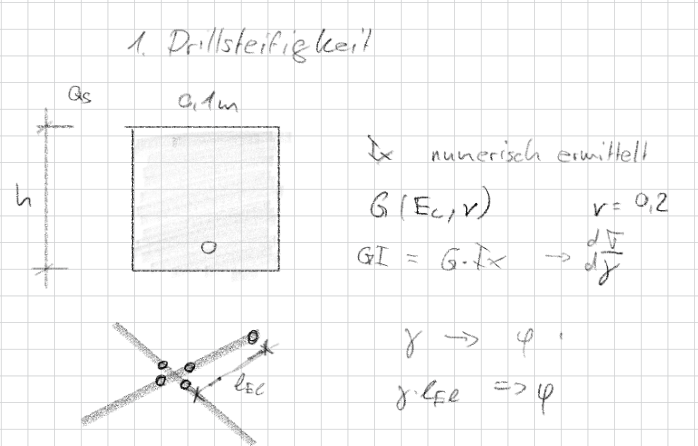 1. Drillsteifigkeit
Qs
0,1m
h
Ix numerisch ermittelt
G(Ec, ν) ν = 0,2
GI = G·Ix → dT/dγ
γ → φ
lEl
γ·lEl => φ